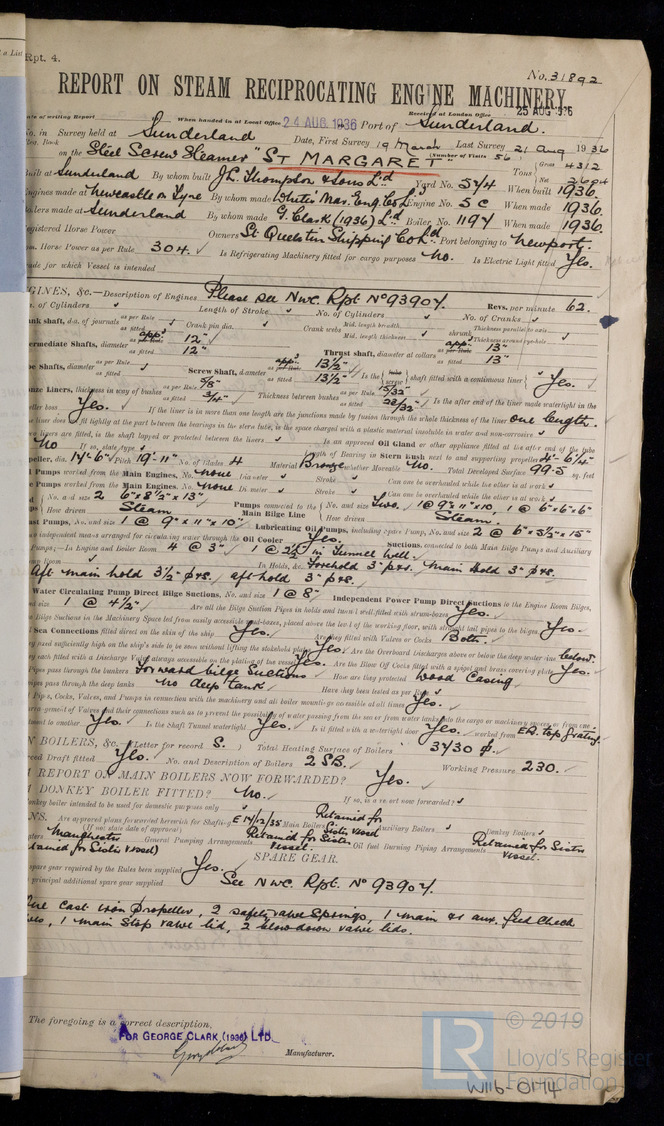 Rpt. 4.
No. 31892
REPORT ON STEAM RECIPROCATING ENGINE MACHINERY
Received at London Office 25 AUG 1936
of writing Report When handed in at Local Office 24 AUG. 1936 Port of Sunderland.
in Survey held at Sunderland Date, First Survey 19 March Last Survey 21 Aug 1936
Book Number of Visits 56
on the Steel Screw Steamer "ST MARGARET" Tons Gross 4312
Net
built at Sunderland By whom built J.L. Thompson & Sons Ld Yard No. 574 When built 1936
Engines made at Newcastle on Tyne By whom made Whites Mar. Eng. Co Ld Engine No. 5C When made 1936
Boilers made at Sunderland By whom made G. Clark (1936) Ld Boiler No. 1194 When made 1936
Registered Horse Power Owners St Quentin Shipping Co Ld Port belonging to Newport.
Horse Power as per Rule 304. Is Refrigerating Machinery fitted for cargo purposes No. Is Electric Light fitted Yes.
Trade for which Vessel is intended
ENGINES, &c.—Description of Engines Please see Nwc. Rpt No 93904. Revs. per minute 62.
No. of Cylinders Length of Stroke No. of Cylinders No. of Cranks
Crank shaft, dia. of journals as per Rule as fitted Crank pin dia. Crank webs Mid. length breadth Mid. length thickness shrunk Thickness parallel to axis Thickness around eye-hole
Intermediate Shafts, diameter appd 12" as fitted 12" Thrust shaft, diameter at collars appd 13" as fitted 13"
Tube Shafts, diameter as per Rule as fitted Screw Shaft, diameter appd 13½" as fitted 13½" Is the screw shaft fitted with a continuous liner Yes.
Bronze Liners, thickness in way of bushes as per Rule 5/8" as fitted 3/4" Thickness between bushes as per Rule 15/32" as fitted 22/32" Is the after end of the liner made watertight in the
propeller boss Yes. If the liner is in more than one length are the junctions made by fusion through the whole thickness of the liner one length.
liner does not fit tightly at the part between the bearings in the stern tube, is the space charged with a plastic material insoluble in water and non-corrosive
liners are fitted, is the shaft lapped or protected between the liners Is an approved Oil Gland or other appliance fitted at the after end of the tube
No If so, state type Length of Bearing in Stern Bush next to and supporting propeller 4'-6¼"
Propeller, dia. 14'-6" Pitch 19'-11" No. of Blades 4 Material Bronze whether Moveable No. Total Developed Surface 99.5 sq. feet
Pumps worked from the Main Engines, No. None Diameter Stroke Can one be overhauled while the other is at work
Pumps worked from the Main Engines, No. None Diameter Stroke Can one be overhauled while the other is at work
No. and size 2 6"x8½"x13" Pumps connected to the Main Bilge Line No. and size Two, 1@9"x11"x10, 1@6"x6"x6"
How driven Steam How driven Steam.
Ballast Pumps, No. and size 1 @ 9"x11"x10" Lubricating Oil Pumps, including Spare Pump, No. and size 2 @ 6"x5½"x15"
independent means arranged for circulating water through the Oil Cooler Yes. Suctions, connected to both Main Bilge Pumps and Auxiliary
Pumps;—In Engine and Boiler Room 4 @ 3" 1 @ 2½" in Tunnel Well.
In Holds, &c. Forehold 3" p&s. Main Hold 3" p&s.
Aft main hold 3½" p&s. aft hold 3" p&s.
Water Circulating Pump Direct Bilge Suctions, No. and size 1 @ 8" Independent Power Pump Direct Suctions to the Engine Room Bilges,
size 1 @ 4½" Are all the Bilge Suction Pipes in holds and tunnel well fitted with strum-boxes Yes.
Bilge Suctions in the Machinery Space led from easily accessible mud-boxes, placed above the level of the working floor, with straight tail pipes to the bilges Yes.
Sea Connections fitted direct on the skin of the ship Yes. Are they fitted with Valves or Cocks Both.
fixed sufficiently high on the ship's side to be seen without lifting the stokehold plates Yes. Are the Overboard Discharges above or below the deep water line below.
each fitted with a Discharge Valve always accessible on the plating of the vessel Yes. Are the Blow Off Cocks fitted with a spigot and brass covering plate Yes.
pipes pass through the bunkers Forward bilge Suctions How are they protected Wood Casing
pipes pass through the deep tanks No deep tank Have they been tested as per Rule
Pipes, Cocks, Valves, and Pumps in connection with the machinery and all boiler mountings accessible at all times Yes.
arrangement of Valves and their connections such as to prevent the possibility of water passing from the sea or from water tanks into the cargo or machinery spaces, or from one
compartment to another Yes. Is the Shaft Tunnel watertight Yes. Is it fitted with a watertight door Yes. worked from E.R. top grating.
BOILERS, &c. (Letter for record S.) Total Heating Surface of Boilers 3430 ϕ.
Forced Draft fitted Yes. No. and Description of Boilers 2 SB. Working Pressure 230.
REPORT ON MAIN BOILERS NOW FORWARDED? Yes.
DONKEY BOILER FITTED? No. If so, is a report now forwarded?
donkey boiler intended to be used for domestic purposes only
PLANS. Are approved plans forwarded herewith for Shafting E 14/12/35 Main Boilers Retained for Sister vessel Auxiliary Boilers Donkey Boilers
(If not state date of approval)
Manchester General Pumping Arrangements Retained for Sister vessel. Oil fuel Burning Piping Arrangements Retained for Sister vessel.
(Retained for Sister vessel)
SPARE GEAR.
spare gear required by the Rules been supplied Yes.
principal additional spare gear supplied See Nwc. Rpt. No 93904.
One cast iron propeller, 2 safety valve springs, 1 main & 1 aux. feed check
1 main stop valve lid, 2 blow down valve lids.
The foregoing is a correct description,
FOR GEORGE CLARK (1936) LTD.
Manufacturer.
LR
© 2019
Lloyd's Register
Foundation
W116-0174